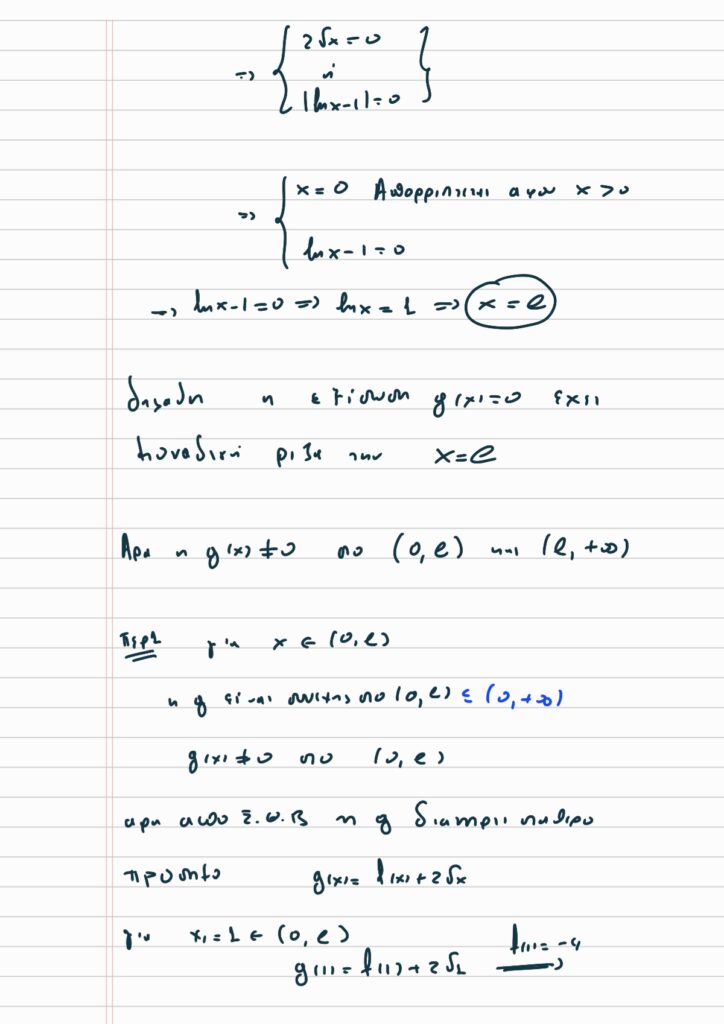 ⇒ { 2√x = 0
ή
|lnx-1| = 0 }
⇒ { x = 0 Απορρίπτεται αφού x > 0
lnx - 1 = 0
→ lnx-1 = 0 ⇒ lnx = 1 ⇒ x = e
δηλαδή η εξίσωση g(x) = 0 έχει
μοναδική ρίζα την x = e
Άρα η g(x) ≠ 0 στο (0, e) και (e, +∞)
Περ1 για x ∈ (0, e)
η g είναι συνεχής στο (0, e) ⊆ (0, +∞)
g(x) ≠ 0 στο (0, e)
άρα από Σ.Θ.Β η g διατηρεί σταθερό
πρόσημο g(x) = f(x) + 2√x
για x₁ = 1 ∈ (0, e)
g(1) = f(1) + 2√1 f(1) = -4 →